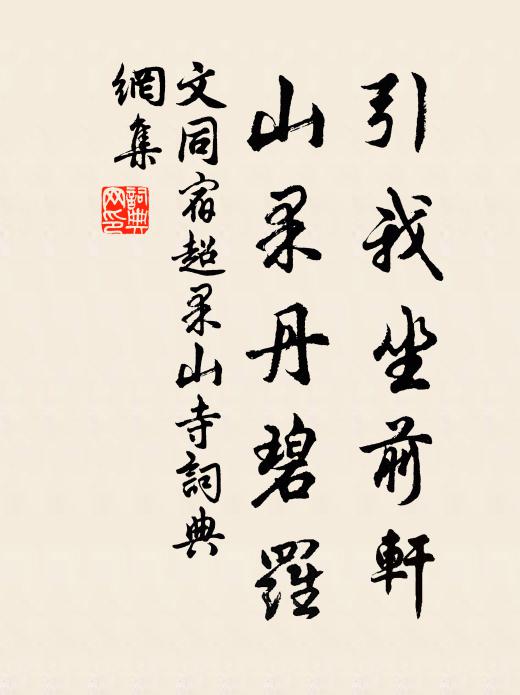 引我坐前軒
山果丹碧羅
文同宿超果山寺詞典
網集
詞典
网印